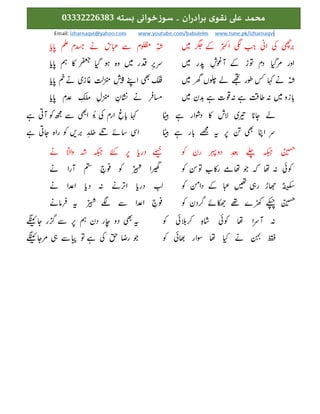 محمد علی نقوی برادران ۔ سوزخوانی بستہ 03332226383
Email: izharnaqvi@yahoo.com www.youtube.com/babulelm www.tune.pk/izharnaqvi
برچھی کی انی نکلی جب اکبر کے جگر میں شہ مظلوم نے عباس نے جسدم علم پایا
اور مر گیا دم توڑ کے آغوش پدر میں سریر قدر میں وہ ہو گیا جعفر کا ہم پایا
شہ نے کہا کس طور تجھے لے چلوں گھر میں فلک بھی اپنے پیش منزلت غازی نے خم پایا
بازو میں نہ طاقت ہے نہ قوت ہے بدن میں مسافر نے نشان منزل ملک عدم پایا
لے جانا تیری لاش کا دشوار ہے بیٹا کہا باغ ارم کی بُو ابھی سے مجھ کو آتی ہے
سر اپنا بھی تن پر مجھے یہ بار ہے بیٹا اسی سائے تلے خلد بریں کو راہ جاتی ہے
حسین جبکہ چلے بعد دوپہر رن کو کئے پر دریا جبکہ شہ والا نے
کوئی نہ تھا کہ جو تھامے رکاب توسن کو گھیرا شبیر کو فوج ستم آرا نے
سکینہ جھاڑ رہی تھیں عبا کے دامن کو لب دریا نہ دیا اترنے اعدا نے
حسین چپکے کھڑے تھے جھکائے گردن کو فوج اعدا سے لگے شبیر یہ فرمانے
نہ آسرا تھا کوئی شاہ کربلائی کو یہ بھی دو چار دن ہم پر سے گزر جائینگے
فقط بہن نے کیا تھا سوار بھائی کو جو رضا حق کی ہے تو پیاسے ہی مر جائینگے